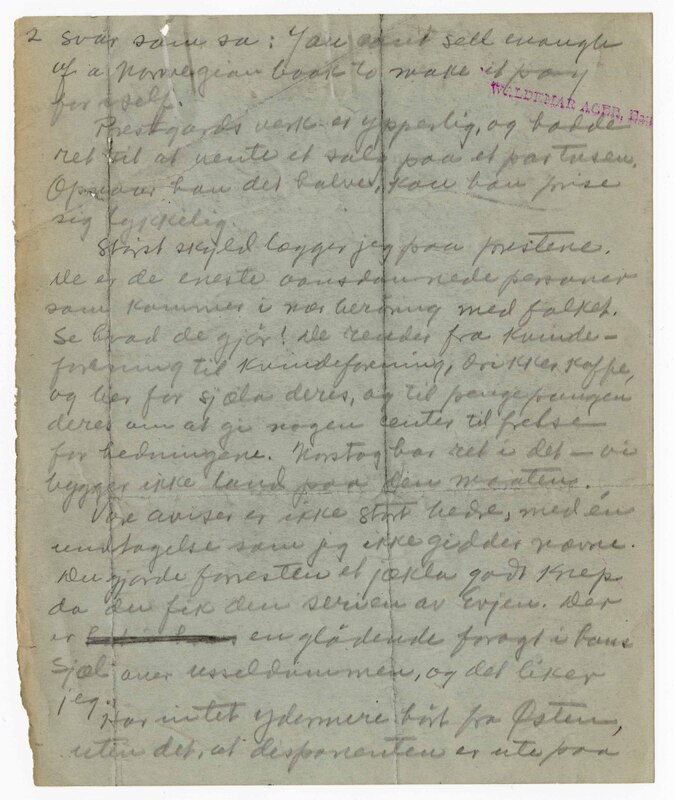 2 svar som sa: You can't sell enough
of a Norwegian book to make it pay
for itself.
WALDEMAR AGER, Esq
Prestgards verk er ypperlig, og hadde
ret til at vente et salg paa et par tusen.
Opnaar han det halve, kan han prise
sig lykkelig.
Størst skyld lægger jeg paa prestene.
De er de eneste vansdannede personer
som kommer i nær berøring med folket.
Se hvad de gjør! De render fra kvinde-
forening til kvindeforening, drikker kaffe,
og ber for sjæla deres, og til pengepungen
deres om at gi nogen center til frelse
for hedningene. Norstog har ret i det – vi
bygger ikke land paa den maaten.
Vore aviser er ikke stort bedre, med én
undtagelse som jeg ikke gidder nævne.
Du gjorde forresten et jækla godt knep
da du fik den serien av Evjen. Der
er en glødende foragt i hans
sjæl over usseldommen, og det liker
jeg.
Har intet ydermere hørt fra Østen,
uten det, at desponenten er ute paa